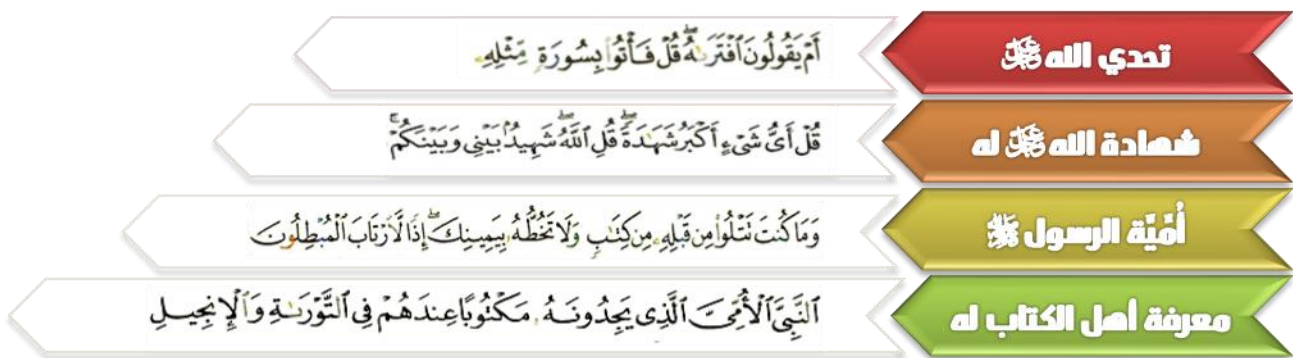 تحدي الله ﷻ
أَمْ يَقُولُونَ ٱفْتَرَىٰهُۖ قُلْ فَأْتُوا۟ بِسُورَةٍ مِّثْلِهِۦ
شهادة الله ﷻ له
قُلْ أَىُّ شَىْءٍ أَكْبَرُ شَهَٰدَةًۖ قُلِ ٱللَّهُۖ شَهِيدٌۢ بَيْنِى وَبَيْنَكُمْۚ
أُمِّيَّة الرسول ﷺ
وَمَا كُنتَ تَتْلُوا۟ مِن قَبْلِهِۦ مِن كِتَٰبٍ وَلَا تَخُطُّهُۥ بِيَمِينِكَۖ إِذًا لَّٱرْتَابَ ٱلْمُبْطِلُونَ
معرفة أهل الكتاب له
ٱلنَّبِىَّ ٱلْأُمِّىَّ ٱلَّذِى يَجِدُونَهُۥ مَكْتُوبًا عِندَهُمْ فِى ٱلتَّوْرَىٰةِ وَٱلْإِنجِيلِ